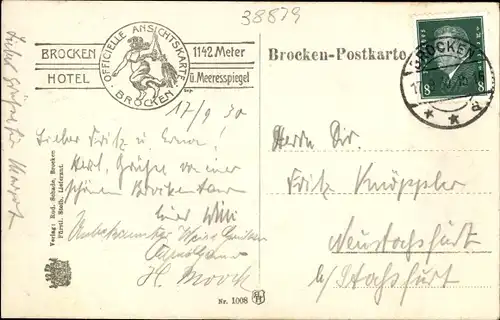 38879
OFFICIELLE ANSICHTSKARTE
BROCKEN
BROCKEN 1142 Meter
HOTEL ü. Meeresspiegel
Brocken-Postkarte
BROCKEN
8 8
17/9 30
Lieber Fritz u. Erna!
Herzl. Grüße von einer
schönen Brockentour
Euer Willi
H. Mook
Liebe Grüße
Margot
Herrn Dir.
Fritz Knöppler
Neustaßfurt
b/ Staßfurt
Verlag: Rud. Schade, Brocken
Fürstl. Stolb. Lieferant.
Nr. 1008